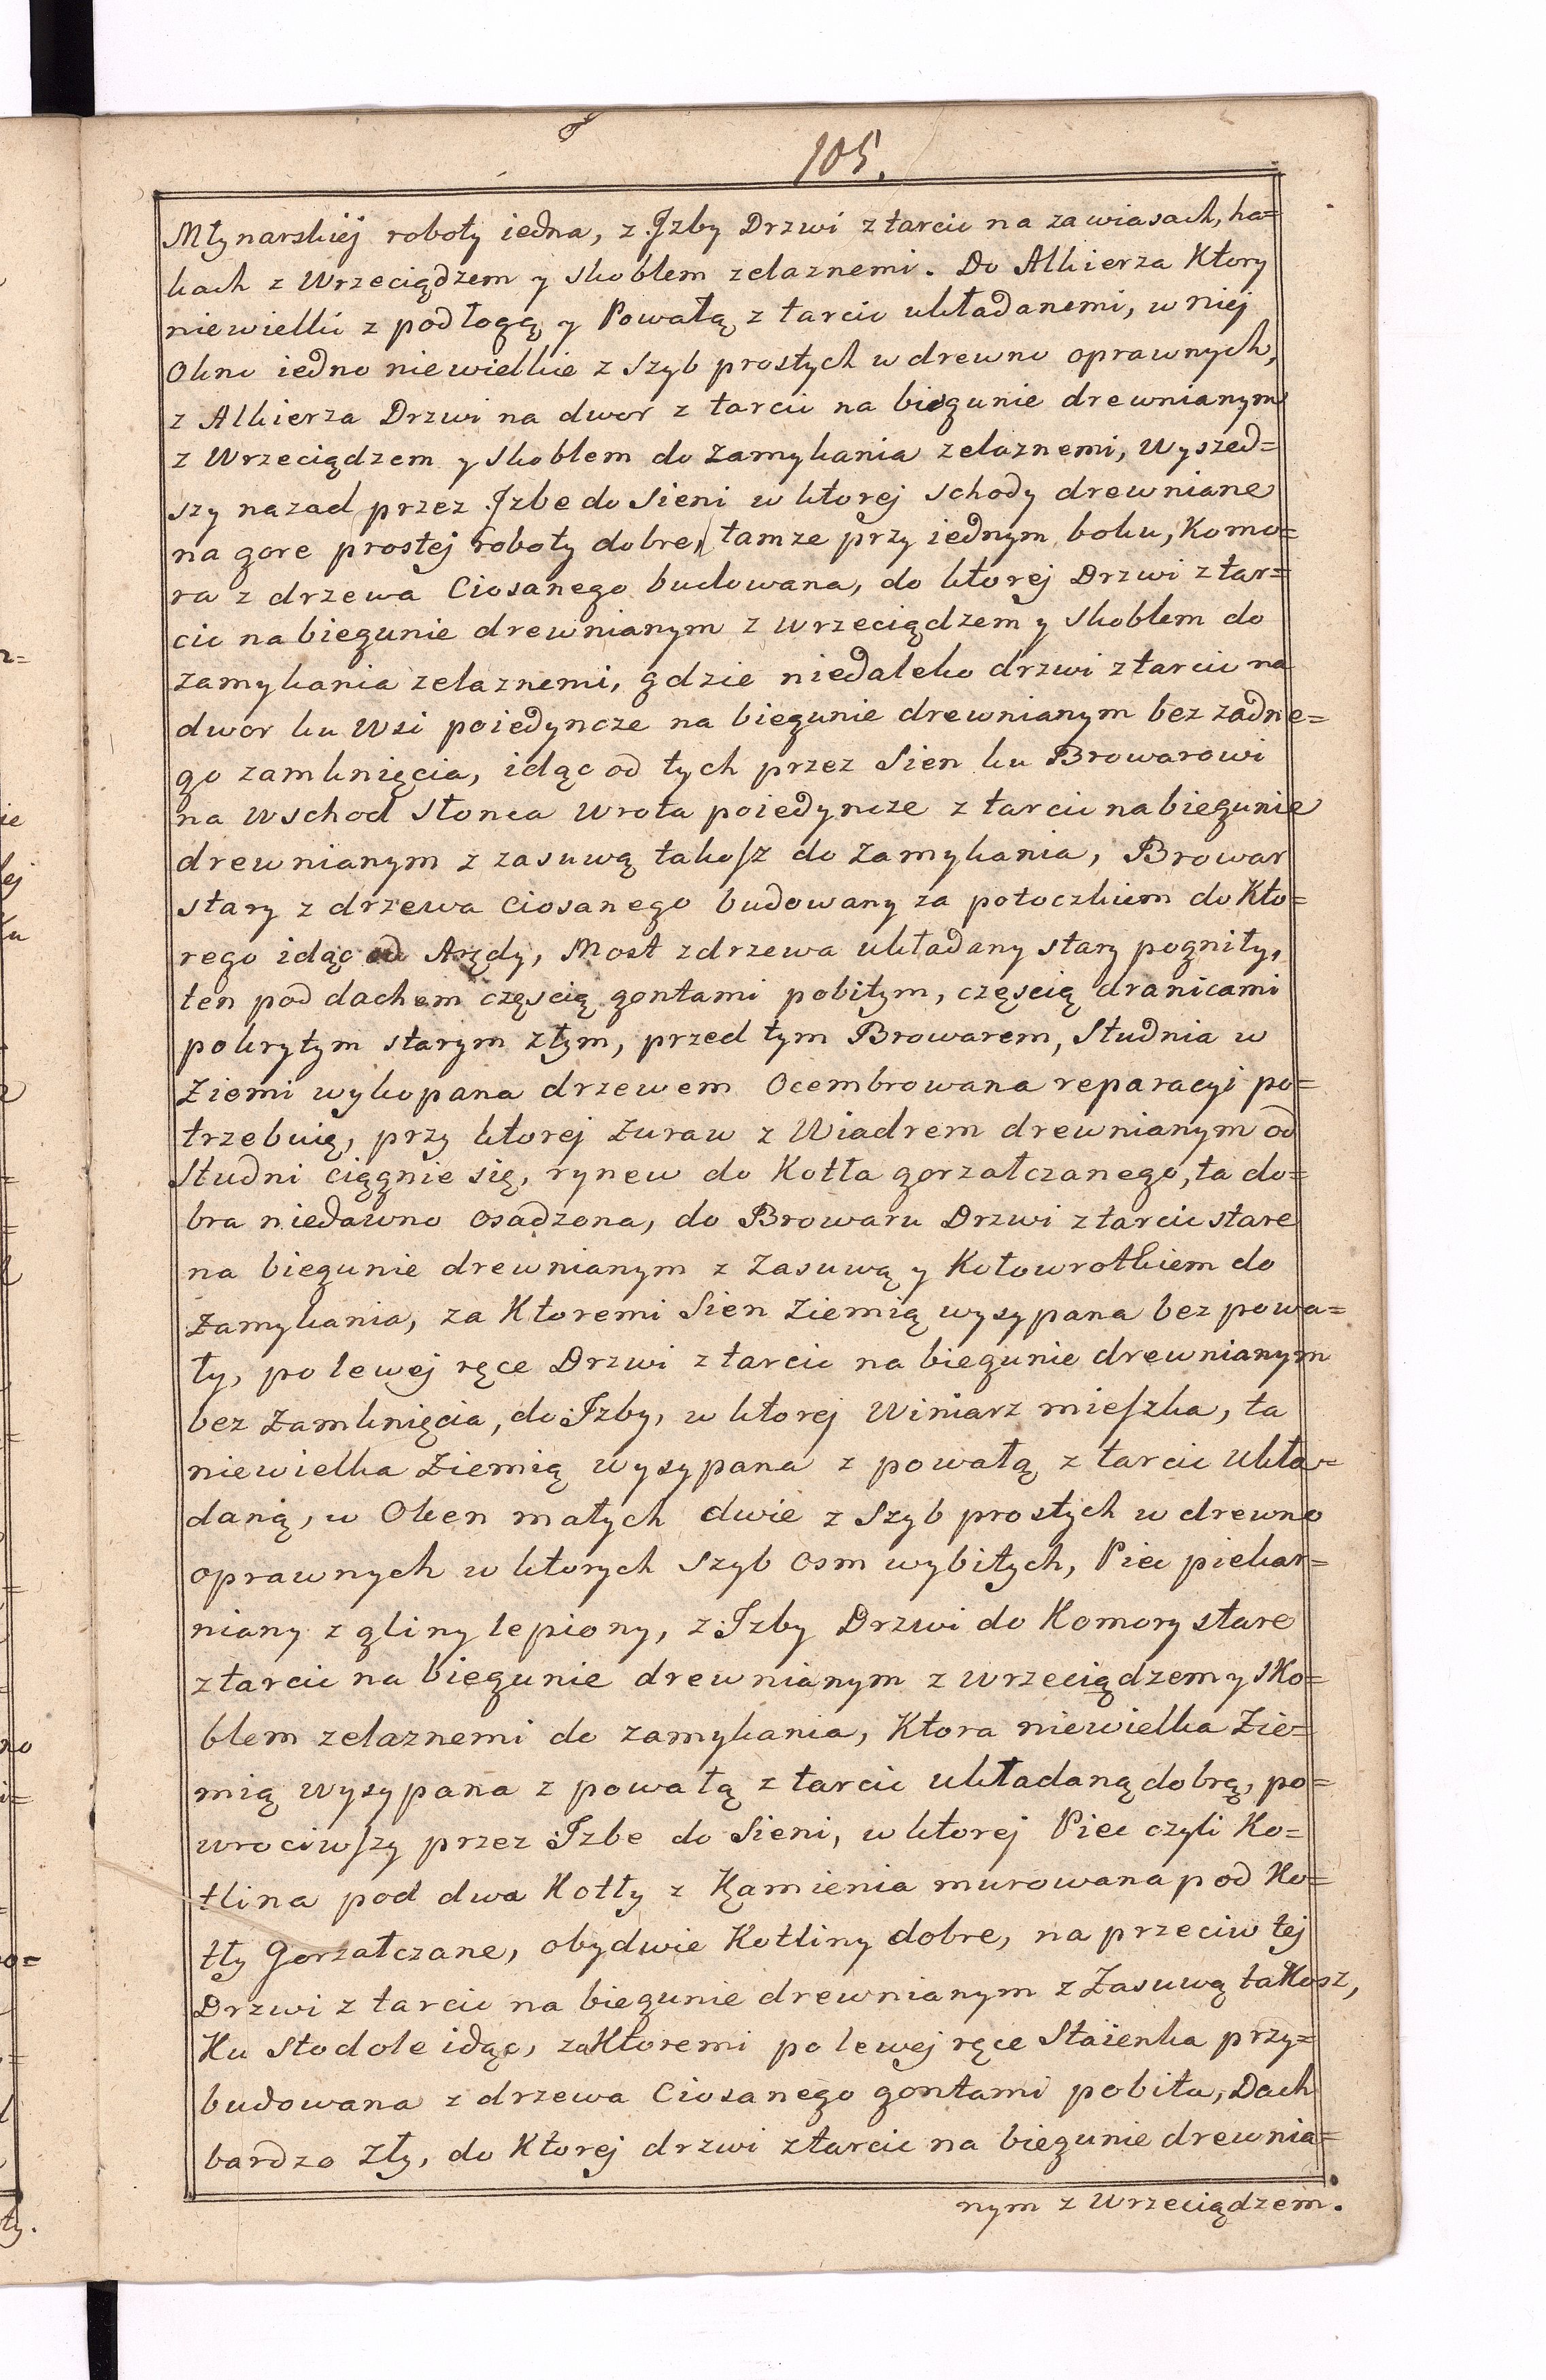 105.
Młynarskiej roboty iedna, z Jzby Drzwi z tarcic na zawiasach, ha=
kach z Wrzeciądzem y skoblem zelaznemi. Do Alkierza Ktory
niewielki z podłogą y Powałą z tarcic układanemi, w niej
Okno iedno niewielkie z Szyb prostych w drewno oprawnych,
z Alkierza Drzwi na dwor z tarcic na biegunie drewnianym
z Wrzeciądzem y Skoblem do Zamykania zelaznemi, Wyszed=
szy nazad przez Jzbe do Sieni w ktorej schody drewniane
na gore prostej roboty dobre, tamze przy iednym boku, Komo=
ra z drzewa Ciosanego budowana, do ktorej Drzwi z tar=
cic na biegunie drewnianym z wrzeciądzem y Skoblem do
zamykania zelaznemi, gdzie niedaleko drzwi z tarcic na
dwor ku Wsi poiedyncze na biegunie drewnianym bez zadne=
go zamknięcia, idąc od tych przez Sien ku Browarowi
na Wschod Słonca Wrota poiedyncze z tarcic na biegunie
drewnianym z zasuwą takosz do Zamykania, Browar
stary z drzewa ciosanego budowany za potoczkiem do Kto=
rego idąc od Arędy, Most z drzewa układany stary pogniły,
ten pod dachem częscią gontami pobitym, częscią dranicami
pokrytym starym złym, przed tym Browarem, Studnia w
Ziemi wykopana drzewem Ocembrowana reparacyi po=
trzebuię, przy ktorej Zuraw z Wiadrem drewnianym od
Studni ciągnie się, rynew do Kotła gorzałczanego, ta do=
bra niedawno osadzona, do Browaru Drzwi z tarcic stare
na biegunie drewnianym z Zasuwą y Kołowrotkiem do
Zamykania, za Ktoremi Sien Ziemią wysypana bez powa=
ły, po lewej ręce Drzwi z tarcic na biegunie drewnianym
bez Zamknięcia, do Jzby, w ktorej Winiarz mieszka, ta
niewielka Ziemią wysypana z powałą z tarcic Ukła=
daną, w Oken małych dwie z Szyb prostych w drewno
oprawnych w ktorych Szyb Osm wybitych, Piec piekar=
niany z gliny lepiony, z Jzby Drzwi do Komory stare
z tarcic na biegunie drewnianym z wrzeciądzem y Sko=
blem zelaznemi do zamykania, Ktora niewielka Zie=
mią wysypana z powałą z tarcic układaną dobrą, po=
wrociwszy przez Jzbe do Sieni, w ktorej Piec czyli Ko=
tlina pod dwa Kotły z Kamienia murowana pod Ko=
tły Gorzałczane, obydwie Kotliny dobre, na przeciw tej
Drzwi z tarcic na biegunie drewnianym z Zasuwą takosz,
Ku Stodole idąc, za Ktoremi po lewej ręce Staienka przy=
budowana z drzewa Ciosanego gontami pobita, Dach
bardzo Zły, do Ktorej drzwi z tarcic na biegunie drewnia=
nym z Wrzeciądzem.